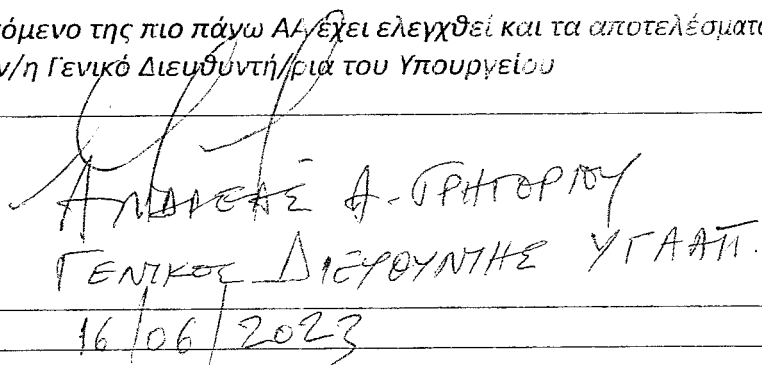 όμενο της πιο πάνω ΑΑ έχει ελεγχθεί και τα αποτελέσματα
ν/η Γενικό Διευθυντή/ρια του Υπουργείου
ΑΝΔΡΕΑΣ Α. ΓΡΗΓΟΡΙΟΥ
ΓΕΝΙΚΟΣ ΔΙΕΥΘΥΝΤΗΣ ΥΓΑΑΠ.
16/06/2023